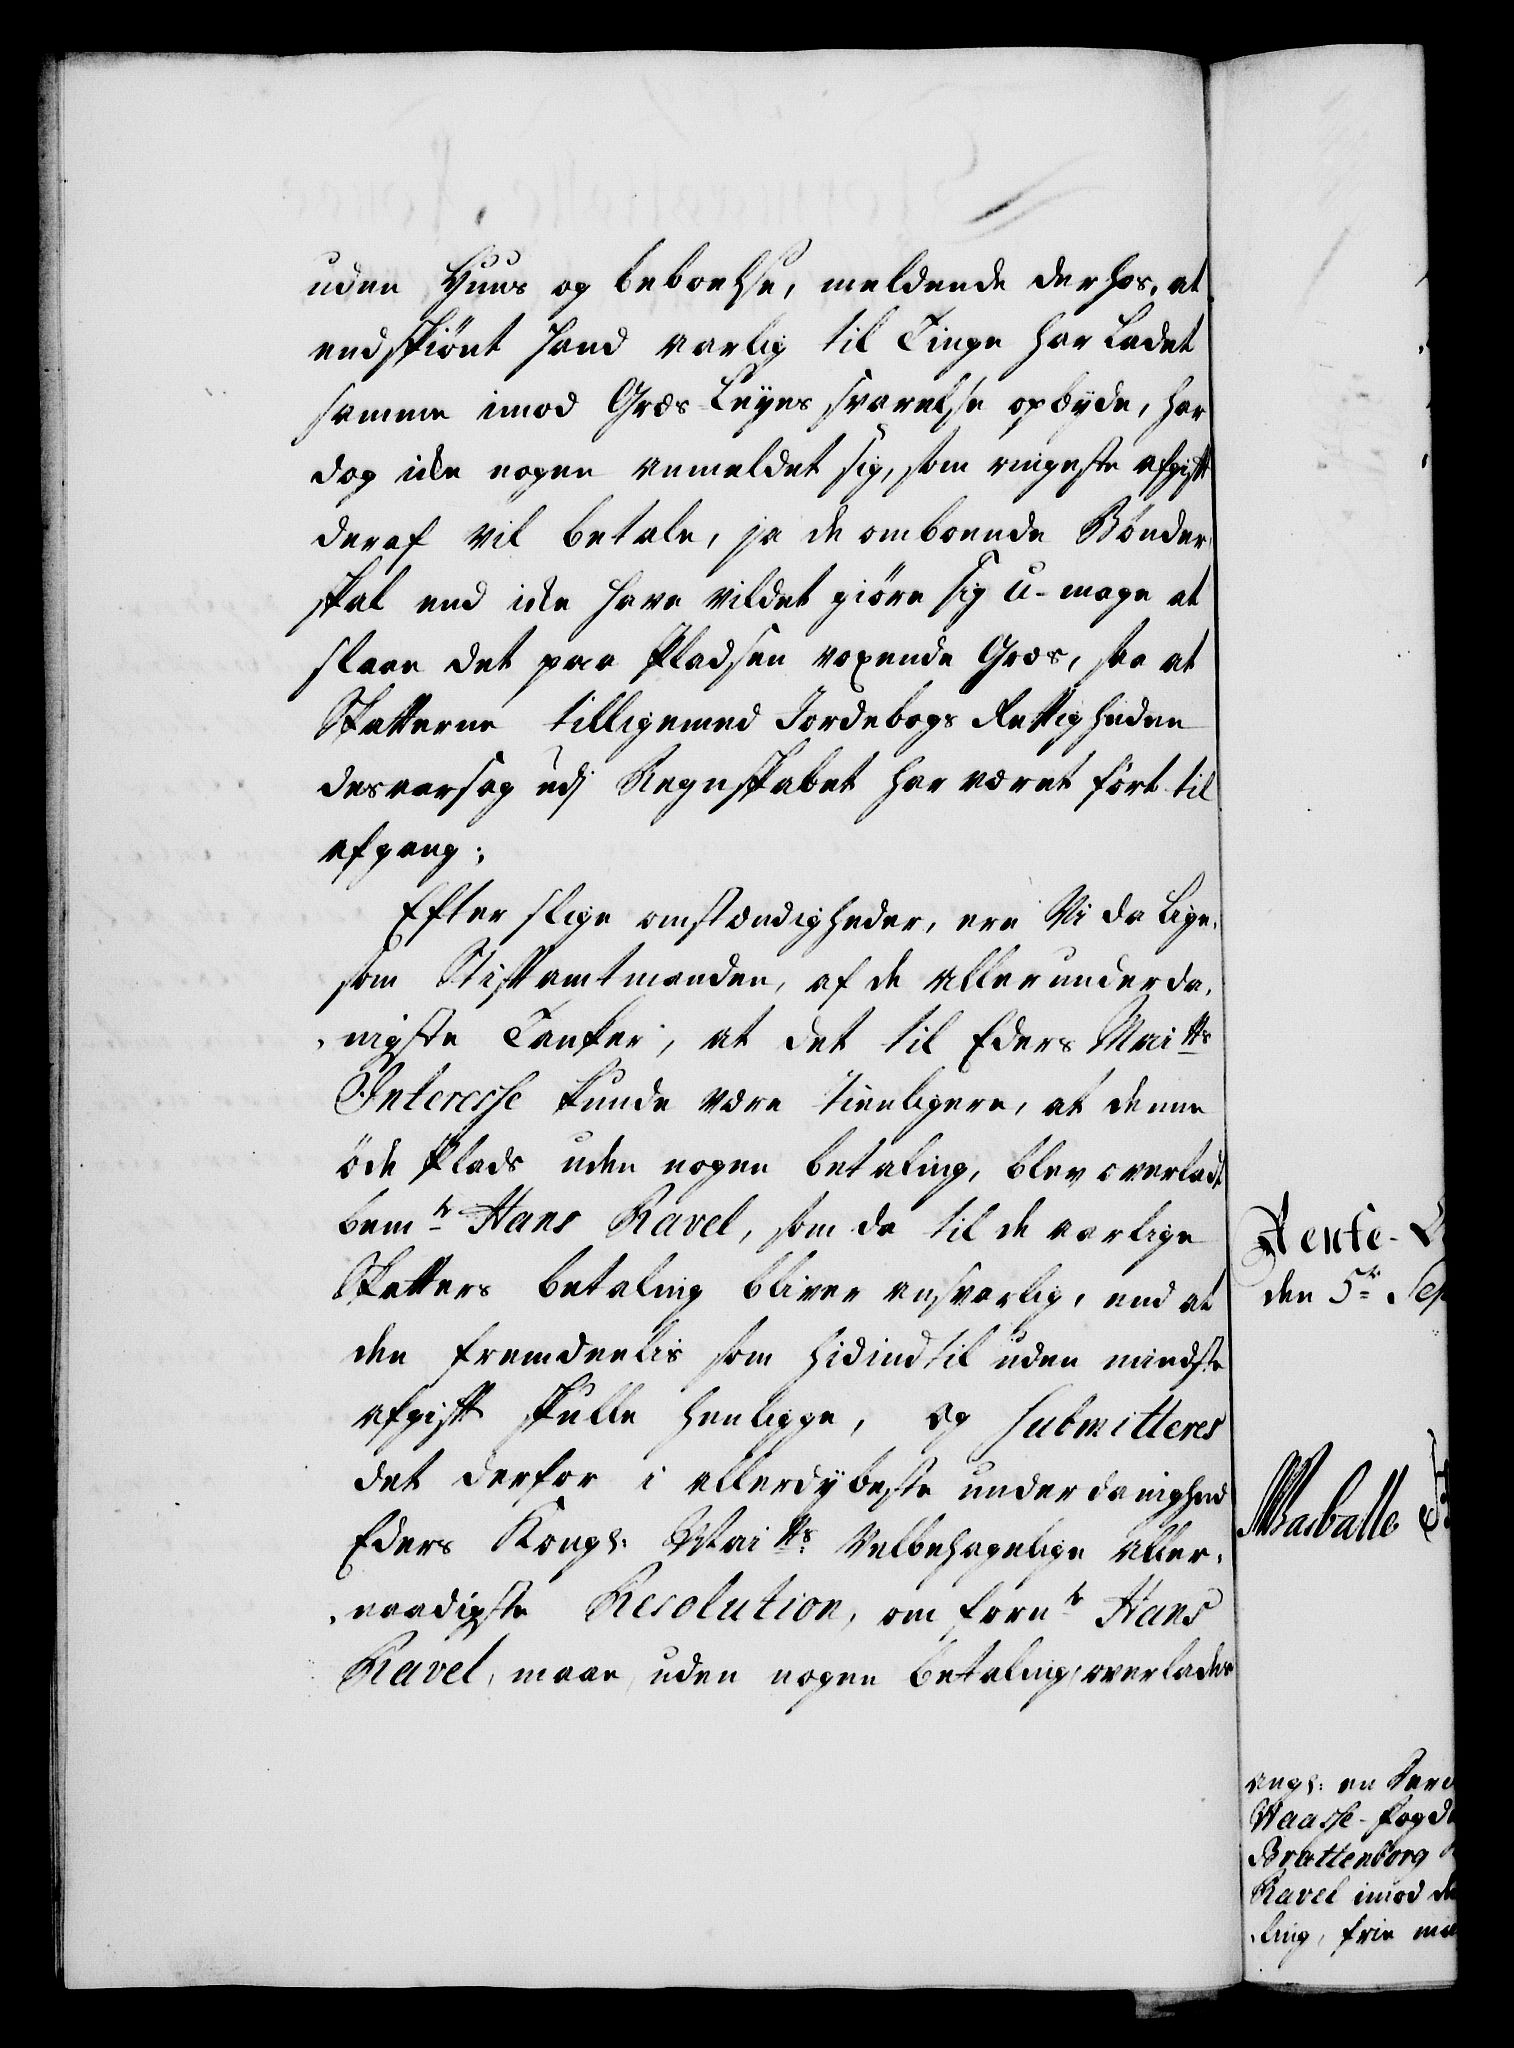 uden Huus og beboelse, meldende derhos, at
endskiönt hand aarlig til Tinge har Ladet
samme imod Græs-Leyes svarelse opbyde, har
dog icke nogen anmeldet sig, som ringeste afgift
deraf vil betale, ja de omboende Bönder
skal end icke have vildet giöre sig U-mage at
slaae det paa Pladsen voxende Græs, saa at
Skatterne tilligemed Jordebogs Rettigheden
desaarsag udj Regnskabet har været fört til
afgang;
Efter slige omstændigheder, ere Vi da lige-
som Stiftamtmanden, af de allerunderda-
nigste Tanker, at det til Eders Maitts
Interesse kunde være tienligere, at denne
öde Plads uden nogen betaling, blev overladt
bemte Hans Ravel, som da til de aarlige
Skatters betaling bliver ansvarlig, end at
den fremdeelis som hidindtil uden mindste
afgift skulle henligge, Og submitteres
det derfor i allerdybeste underdanighed
Eders Kongl: Maitts Velbehagelige Aller-
naadigste Resolution, om fornte Hans
Ravel, maae uden nogen betaling overlades
Rente-
den 5te Sep
angl: en
Haasse-Fogd
Brattenborg
Ravel imod de
ling, frie